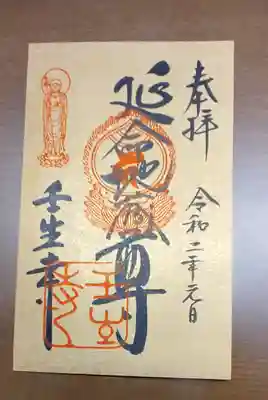 奉拝
令和二年元日
延命地蔵尊
壬生寺